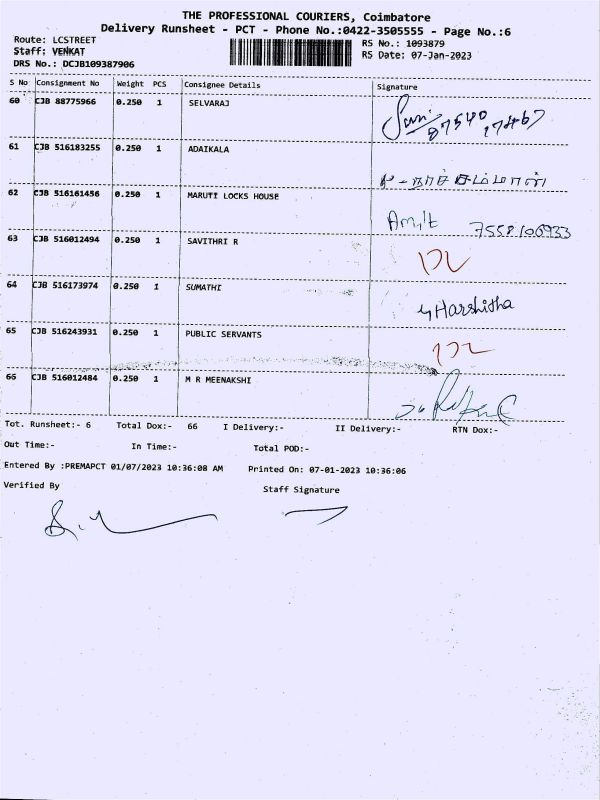 THE PROFESSIONAL COURIERS, Coimbatore
Delivery Runsheet - PCT - Phone No.:0422-3505555 - Page No.:6
Route: LCSTREET RS No.: 1093879
Staff: VENKAT RS Date: 07-Jan-2023
DRS No.: DCJB109387906
S No Consignment No Weight PCS Consignee Details Signature
60 CJB 88775966 0.250 1 SELVARAJ
61 CJB 516183255 0.250 1 ADAIKALA
62 CJB 516161456 0.250 1 MARUTI LOCKS HOUSE Amit 7558106933
63 CJB 516012494 0.250 1 SAVITHRI R
64 CJB 516173974 0.250 1 SUMATHI Harshitha
65 CJB 516243931 0.250 1 PUBLIC SERVANTS
66 CJB 516012484 0.250 1 M R MEENAKSHI
Tot. Runsheet:- 6 Total Dox:- 66 I Delivery:- II Delivery:- RTN Dox:-
Out Time:- In Time:- Total POD:-
Entered By :PREMAPCT 01/07/2023 10:36:08 AM Printed On: 07-01-2023 10:36:06
Verified By Staff Signature